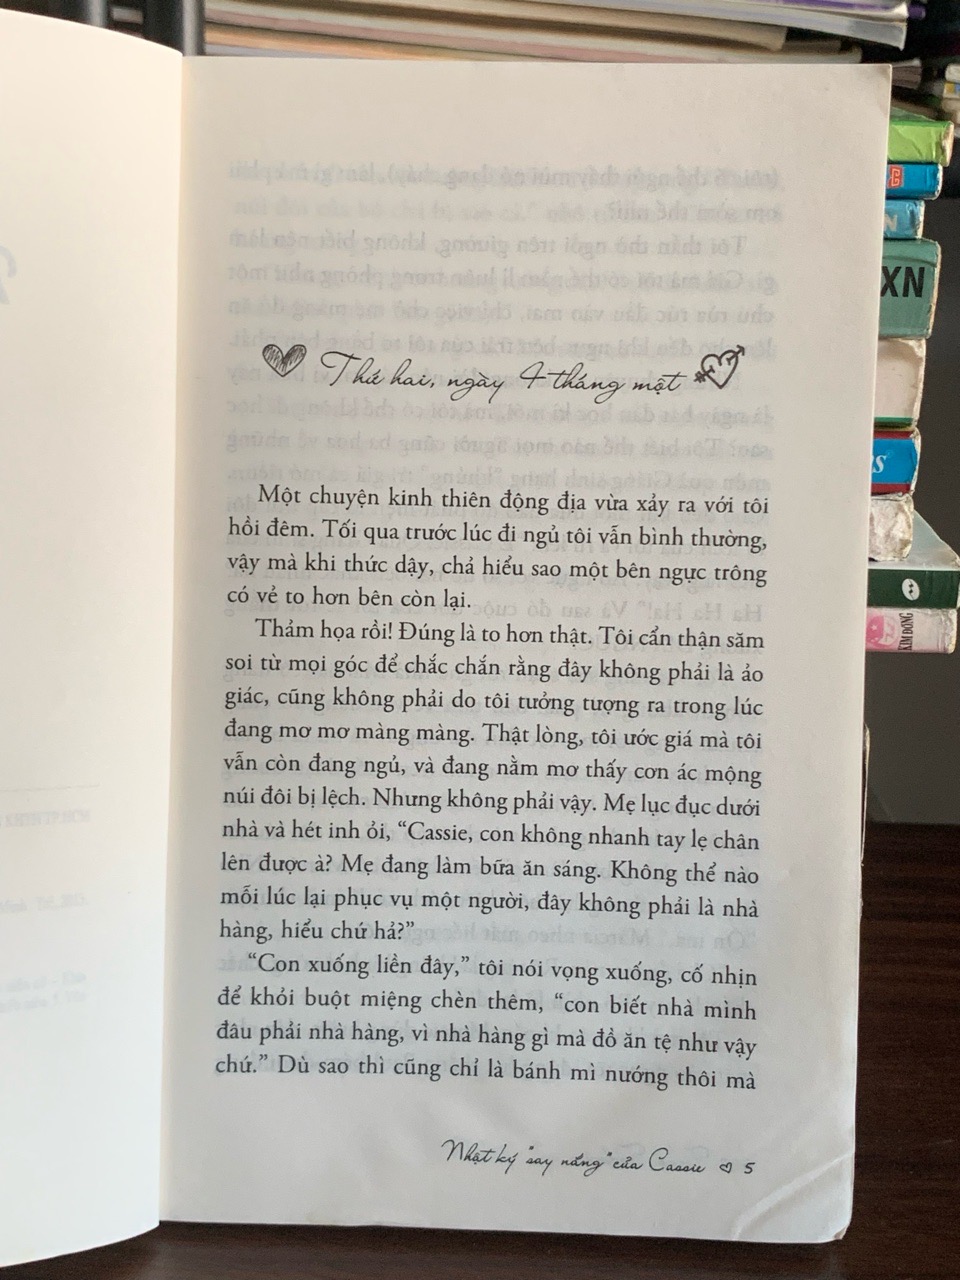 Thứ hai, ngày 4 tháng một
Một chuyện kinh thiên động địa vừa xảy ra với tôi
hồi đêm. Tối qua trước lúc đi ngủ tôi vẫn bình thường,
vậy mà khi thức dậy, chả hiểu sao một bên ngực trông
có vẻ to hơn bên còn lại.
Thảm họa rồi! Đúng là to hơn thật. Tôi cẩn thận săm
soi từ mọi góc để chắc chắn rằng đây không phải là ảo
giác, cũng không phải do tôi tưởng tượng ra trong lúc
đang mơ mơ màng màng. Thật lòng, tôi ước giá mà tôi
vẫn còn đang ngủ, và đang nằm mơ thấy cơn ác mộng
núi đôi bị lệch. Nhưng không phải vậy. Mẹ lục đục dưới
nhà và hét inh ỏi, “Cassie, con không nhanh tay lẹ chân
lên được à? Mẹ đang làm bữa ăn sáng. Không thể nào
mỗi lúc lại phục vụ một người, đây không phải là nhà
hàng, hiểu chứ hả?”
“Con xuống liền đây,” tôi nói vọng xuống, cố nhịn
để khỏi buột miệng chèn thêm, “con biết nhà mình
đâu phải nhà hàng, vì nhà hàng gì mà đồ ăn tệ như vậy
chứ.” Dù sao thì cũng chỉ là bánh mì nướng thôi mà
Nhật ký "say nắng" của Cassie ♡ 5
XN
N
S
KIM ĐỒNG